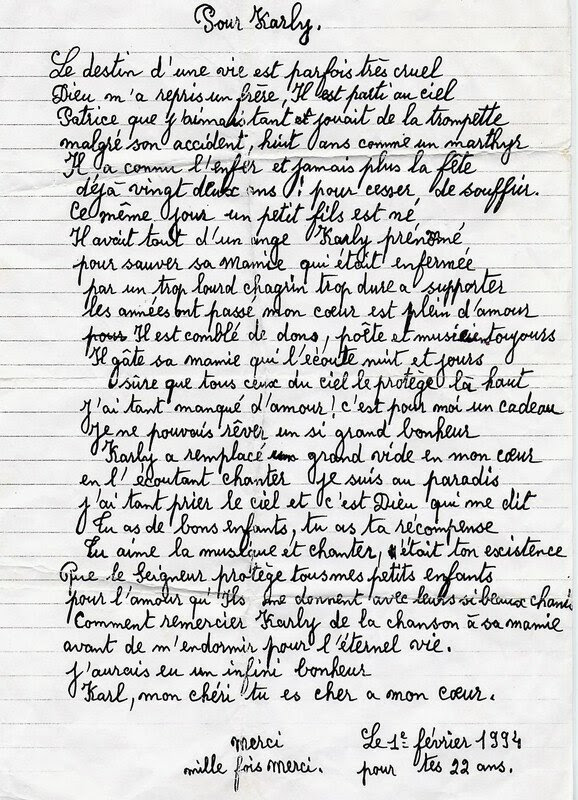 Pour Karly.
Le destin d'une vie est parfois très cruel
Dieu m'a repris un frère, Il est parti au ciel
Patrice que j'aimais tant et jouait de la trompette
malgré son accident, huit ans comme un marthyr
Il a connu l'enfer et jamais plus la fête
déjà vingt deux ans ! pour cesser de souffrir.
Ce même jour un petit fils est né
Il avait tout d'un ange Karly prénommé
pour sauver sa Mamie qui était enfermée
par un trop lourd chagrin trop dure a supporter
les années ont passé mon cœur est plein d'amour
pour Il est comblé de dons, poête et musicien toujours
Il gâte sa mamie qui l'écoute nuit et jours
sûre que tous ceux du ciel le protège là haut
J'ai tant manqué d'amour ! c'est pour moi un cadeau
Je ne pouvais rêver un si grand bonheur
Karly a remplacé un grand vide en mon cœur
en l'écoutant chanter je suis au paradis
j'ai tant prier le ciel et c'est Dieu qui me dit
Tu as de bons enfants, tu as ta récompense
Tu aime la musique et chanter, c'était ton existence
Que le Seigneur protège tous mes petits enfants
pour l'amour qu'Ils me donnent avec leurs si beaux chants
Comment remercier Karly de la chanson à sa mamie
avant de m'endormir pour l'éternel vie.
j'aurais eu un infini bonheur
Karl, mon chéri tu es cher a mon cœur.
Merci Le 1e février 1994
mille fois merci. pour tes 22 ans.